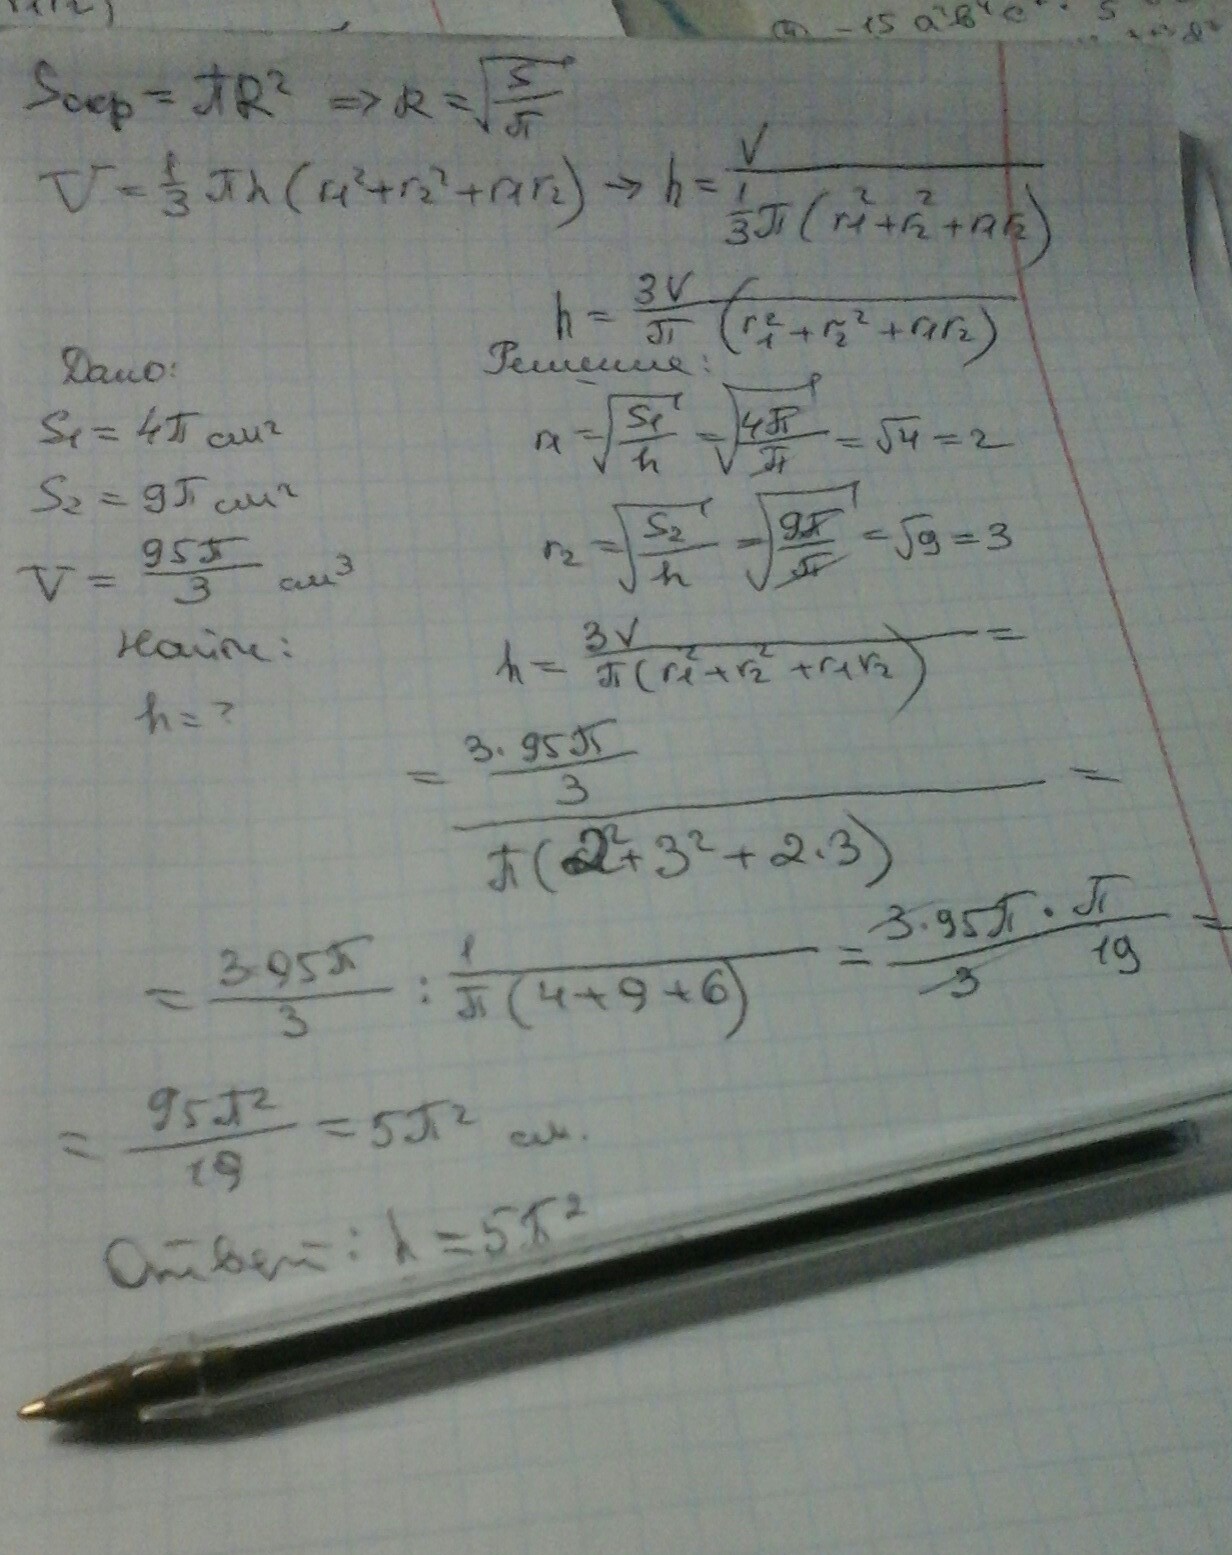 Sокр = πR² => R = √(S/π)
V = 1/3 πh (r₁² + r₂² + r₁r₂) → h = V / (1/3 π (r₁² + r₂² + r₁r₂))
h = 3V / π (r₁² + r₂² + r₁r₂)
Дано:
S₁ = 4π см²
S₂ = 9π см²
V = 95π/3 см³
Найти:
h = ?
Решение:
r₁ = √(S₁/h) = √(4π/π) = √4 = 2
r₂ = √(S₂/h) = √(9π/π) = √9 = 3
h = 3V / π(r₁² + r₂² + r₁r₂) =
= (3·95π/3) / π(2² + 3² + 2·3) =
= 3·95π/3 : 1/π(4+9+6) = 3·95π/3 · π/19 =
= 95π²/19 = 5π² см.
Ответ: h = 5π²